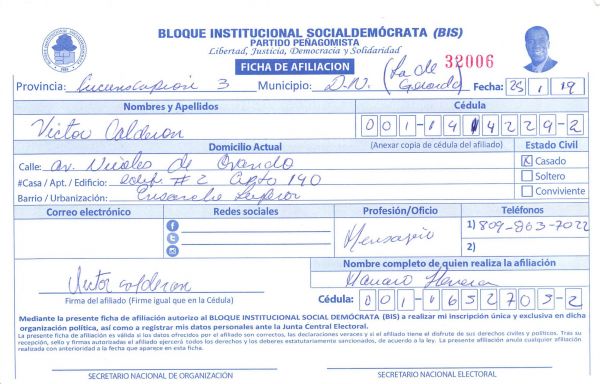 BLOQUE INSTITUCIONAL SOCIALDEMÓCRATA (BIS)
PARTIDO PEÑAGOMISTA
Libertad, Justicia, Democracia y Solidaridad
FICHA DE AFILIACION
32006
Provincia: Circunscripción 3 Municipio: D.N. (La de Gerardo) Fecha: 25 1 19
Nombres y Apellidos Cédula
Victor Calderon
Domicilio Actual (Anexar copia de cédula del afiliado) Estado Civil
Calle: Av. Nicolas de Ovando
X Casado
#Casa / Apt. / Edificio: Edif. #2 Apto 140
Soltero
Barrio / Urbanización:
Conviviente
Correo electrónico Redes sociales Profesión/Oficio Teléfonos
Mensajero
1) 809-863-7022
2)
Nombre completo de quien realiza la afiliación
Victor Calderon
Firma del afiliado (Firme igual que en la Cédula)
Cédula: 001-0652703-2
Mediante la presente ficha de afiliación autorizo al BLOQUE INSTITUCIONAL SOCIAL DEMÓCRATA (BIS) a realizar mi inscripción única y exclusiva en dicha
organización política, así como a registrar mis datos personales ante la Junta Central Electoral.
La presente ficha de afiliación es válida si los datos ofrecidos por el afiliado son correctos, las declaraciones veraces y si el afiliado tiene el disfrute de sus derechos civiles y políticos. Tras su
recepción, sello y firmas autorizadas el afiliado ejercerá todos los derechos y los deberes estatutariamente sancionados, de acuerdo a la ley. La presente afiliación anula cualquier afiliación
realizada con anterioridad a la fecha que aparece en esta ficha.
SECRETARIO NACIONAL DE ORGANIZACIÓN SECRETARIO NACIONAL ELECTORAL